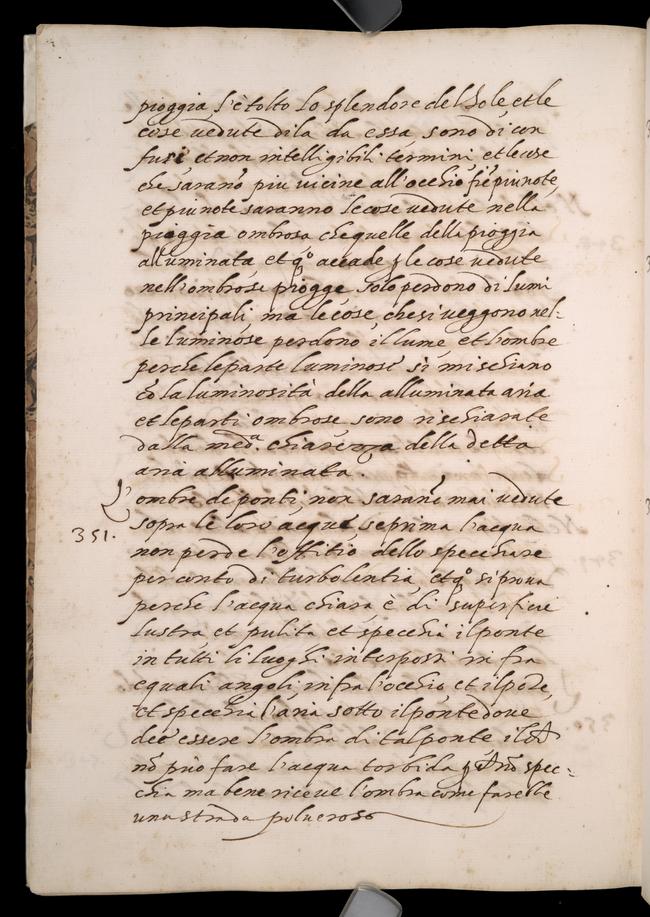 pioggia s'è tolto lo splendore del sole et le
cose vedute di la da essa sono di con
fusi et non intelligibili termini et le cose
che sarano piu vicine all'occhio fie piu note,
et piu note saranno le cose vedute nella
pioggia ombrosa che quelle della pioggia
alluminata et q.º accade p le cose vedute
nell'ombrose piogge solo perdono di lumi
principali ma le cose che si veggono nel-
le luminose perdono il lume et l'ombre
perche le parte luminose si mischiano
cō la luminosità della alluminata aria
et le parti ombrose sono rischiarate
dalla med.ª chiarezza della detta
aria alluminata.
L'ombre de ponti non sarano mai vedute
351. sopra le loro acque se prima l'acqua
non perde l'offitio dello specchiare
per conto di turbolentia, et q.º si prova
perche l'acqua chiara è di superficie
lustra et pulita et specchia il ponte
in tutti li luoghi interposti in fra
equali angoli infra l'occhio et il pōte,
et specchia l'aria sotto il ponte dove
dee essere l'ombra di tal ponte il
nō può fare l'acqua torbida nō spec-
chia ma bene riceve l'ombra come farebbe
una strada polverosa